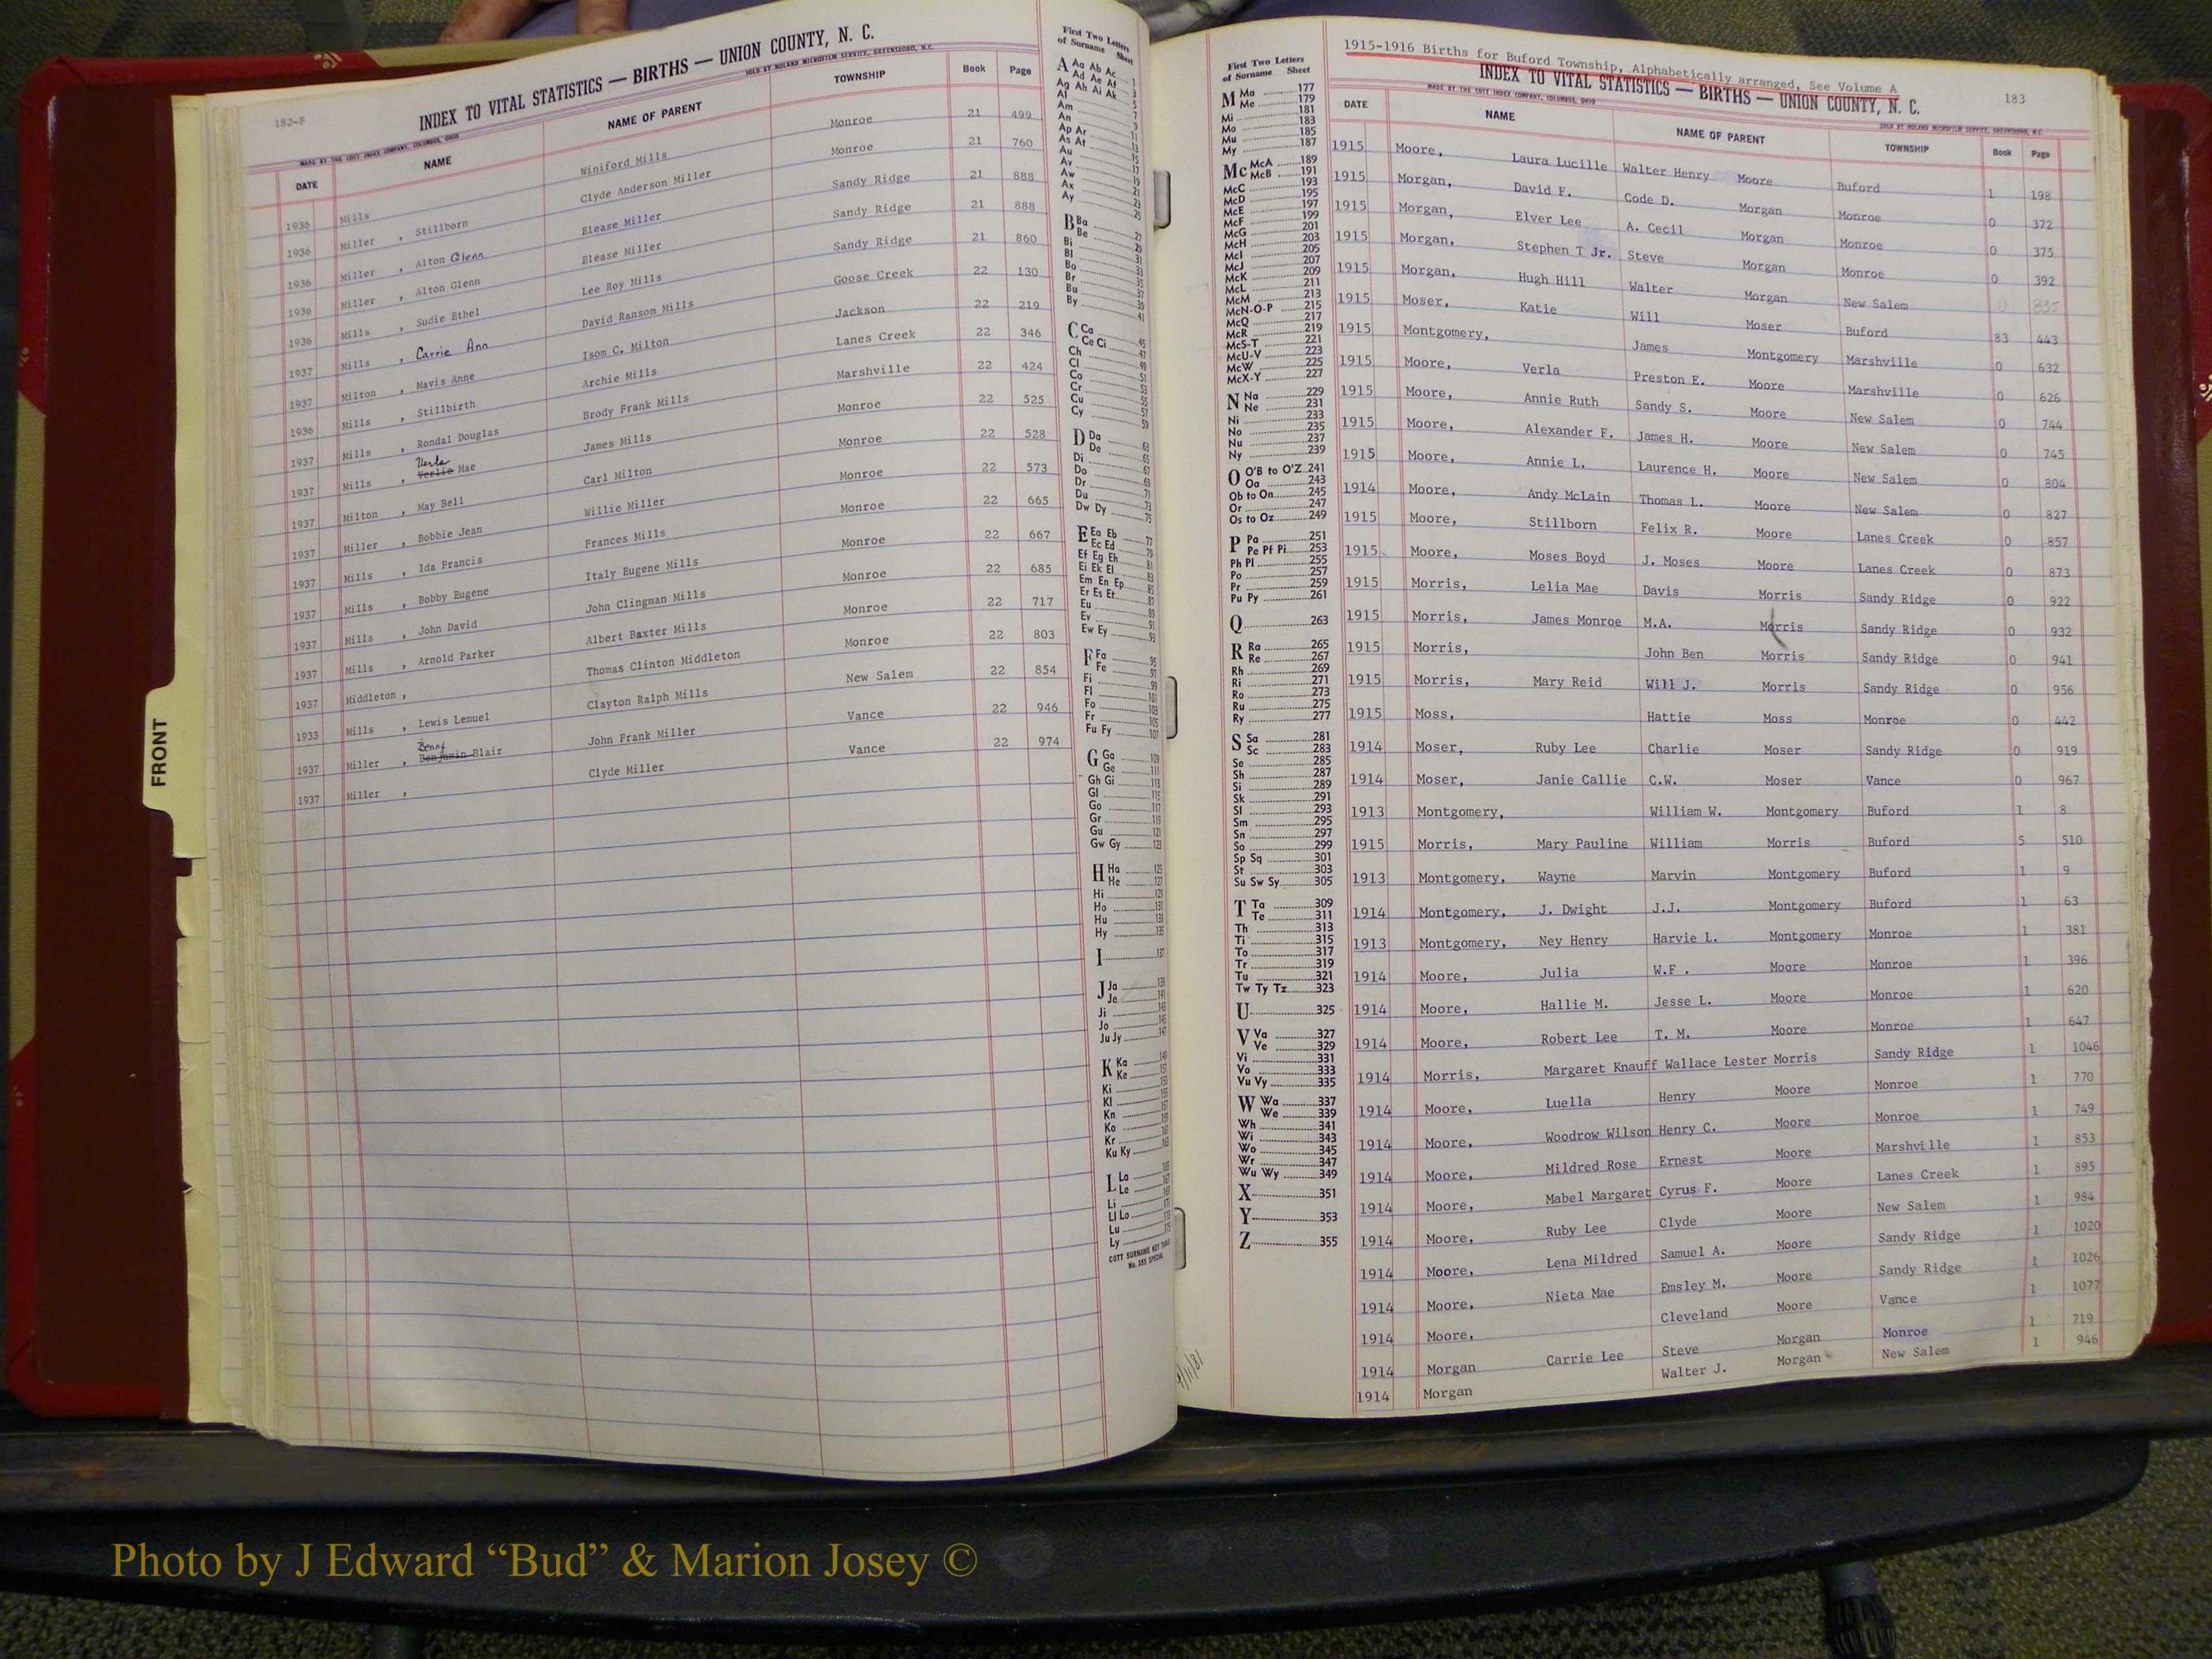 182-F
INDEX TO VITAL STATISTICS — BIRTHS — UNION COUNTY, N. C.
MADE BY THE COTT INDEX COMPANY, COLUMBUS, OHIO SOLD BY NOLAND MICROFILM SERVICE, GREENSBORO, N.C.
DATE NAME NAME OF PARENT TOWNSHIP Book Page
1936 Mills Winiford Mills Monroe 21 499
1936 Miller , Stillborn Clyde Anderson Miller Monroe 21 760
1936 Miller , Alton Glenn Elease Miller Sandy Ridge 21 888
1936 Miller , Alton Glenn Elease Miller Sandy Ridge 21 888
1936 Mills , Sudie Ethel Lee Roy Mills Sandy Ridge 21 860
1937 Mills , Carrie Ann David Ransom Mills Goose Creek 22 130
1937 Milton , Mavis Anne Isom C. Milton Jackson 22 219
1936 Mills , Stillbirth Archie Mills Lanes Creek 22 346
1937 Mills , Rondal Douglas Brody Frank Mills Marshville 22 424
Verla
1937 Mills , Verlie Mae James Mills Monroe 22 525
1937 Milton , May Bell Carl Milton Monroe 22 528
1937 Miller , Bobbie Jean Willie Miller Monroe 22 573
1937 Mills , Ida Francis Frances Mills Monroe 22 665
1937 Mills , Bobby Eugene Italy Eugene Mills Monroe 22 667
1937 Mills , John David John Clingman Mills Monroe 22 685
1937 Mills , Arnold Parker Albert Baxter Mills Monroe 22 717
1937 Middleton , Thomas Clinton Middleton Monroe 22 803
1933 Mills , Lewis Lemuel Clayton Ralph Mills New Salem 22 854
Benny
1937 Miller , Benjamin Blair John Frank Miller Vance 22 946
1937 Miller , Clyde Miller Vance 22 974
FRONT
First Two Letters
of Surname Sheet
A Aa Ab Ac 1
Ad Ae Af 3
Ag Ah Ai Ak 5
Al 7
Am 9
An 11
Ap Ar 13
As At 15
Au 17
Av 19
Aw 21
Ax 23
Ay 25
B Ba 27
Be 29
Bi 31
Bl 33
Bo 35
Br 37
Bu 39
By 41
C Ca 45
Ce Ci 47
Ch 49
Cl 51
Co 53
Cr 55
Cu 57
Cy 59
D Da 63
De 65
Di 67
Do 69
Dr 71
Du 73
Dw Dy 75
E Ea Eb 77
Ec Ed 79
Ef Eg Eh 81
Ei Ek El 83
Em En Ep 85
Er Es Et 87
Eu 89
Ev 91
Ew Ey 93
F Fa 95
Fe 97
Fi 99
Fl 101
Fo 103
Fr 105
Fu Fy 107
G Ga 109
Ge 111
Gh Gi 113
Gl 115
Go 117
Gr 119
Gu 121
Gw Gy 123
H Ha 125
He 127
Hi 129
Ho 131
Hu 133
Hy 135
I 137
J Ja 139
Je 141
Ji 143
Jo 145
Ju Jy 147
K Ka 149
Ke 151
Ki 153
Kl 155
Kn 157
Ko 159
Kr 161
Ku Ky 163
L La 165
Le 167
Li 169
Ll Lo 171
Lu 173
Ly 175
COTT SURNAME KEY TABLE
No. 355 SPECIAL
1915-1916 Births for Buford Township, Alphabetically arranged, See Volume A
INDEX TO VITAL STATISTICS — BIRTHS — UNION COUNTY, N. C.
183
MADE BY THE COTT INDEX COMPANY, COLUMBUS, OHIO SOLD BY NOLAND MICROFILM SERVICE, GREENSBORO, N.C.
First Two Letters
of Surname Sheet
M Ma 177
Me 179
Mi 181
Mo 183
Mu 185
My 187
Mc McA 189
McB 191
McC 193
McD 195
McE 197
McF 199
McG 201
McH 203
McI 205
McJ 207
McK 209
McL 211
McM 213
McN-O-P 215
McQ 217
McR 219
McS-T 221
McU-V 223
McW 225
McX-Y 227
N Na 229
Ne 231
Ni 233
No 235
Nu 237
Ny 239
O O'B to O'Z 241
Oa 243
Ob to On 245
Or 247
Os to Oz 249
P Pa 251
Pe Pf Pi 253
Ph Pl 255
Po 257
Pr 259
Pu Py 261
Q 263
R Ra 265
Re 267
Rh 269
Ri 271
Ro 273
Ru 275
Ry 277
S Sa 281
Sc 283
Se 285
Sh 287
Si 289
Sk 291
Sl 293
Sm 295
Sn 297
So 299
Sp Sq 301
St 303
Su Sw Sy 305
T Ta 309
Te 311
Th 313
Ti 315
To 317
Tr 319
Tu 321
Tw Ty Tz 323
U 325
V Va 327
Ve 329
Vi 331
Vo 333
Vu Vy 335
W Wa 337
We 339
Wh 341
Wi 343
Wo 345
Wr 347
Wu Wy 349
X 351
Y 353
Z 355
DATE NAME NAME OF PARENT TOWNSHIP Book Page
1915 Moore, Laura Lucille Walter Henry Moore Buford 1 198
1915 Morgan, David F. Code D. Morgan Monroe 0 372
1915 Morgan, Elver Lee A. Cecil Morgan Monroe 0 375
1915 Morgan, Stephen T Jr. Steve Morgan Monroe 0 392
1915 Morgan, Hugh Hill Walter Morgan New Salem 0 835
1915 Moser, Katie Will Moser Buford 83 443
1915 Montgomery, James Montgomery Marshville 0 632
1915 Moore, Verla Preston E. Moore Marshville 0 626
1915 Moore, Annie Ruth Sandy S. Moore New Salem 0 744
1915 Moore, Alexander F. James H. Moore New Salem 0 745
1915 Moore, Annie L. Laurence H. Moore New Salem 0 804
1914 Moore, Andy McLain Thomas L. Moore New Salem 0 827
1915 Moore, Stillborn Felix R. Moore Lanes Creek 0 857
1915 Moore, Moses Boyd J. Moses Moore Lanes Creek 0 873
1915 Morris, Lelia Mae Davis Morris Sandy Ridge 0 922
1915 Morris, James Monroe M.A. Morris Sandy Ridge 0 932
1915 Morris, John Ben Morris Sandy Ridge 0 941
1915 Morris, Mary Reid Will J. Morris Sandy Ridge 0 956
1915 Moss, Hattie Moss Monroe 0 442
1914 Moser, Ruby Lee Charlie Moser Sandy Ridge 0 919
1914 Moser, Janie Callie C.W. Moser Vance 0 967
1913 Montgomery, William W. Montgomery Buford 1 8
1915 Morris, Mary Pauline William Morris Buford 5 510
1913 Montgomery, Wayne Marvin Montgomery Buford 1 9
1914 Montgomery, J. Dwight J.J. Montgomery Buford 1 63
1913 Montgomery, Ney Henry Harvie L. Montgomery Monroe 1 381
1914 Moore, Julia W.F . Moore Monroe 1 396
1914 Moore, Hallie M. Jesse L. Moore Monroe 1 620
1914 Moore, Robert Lee T. M. Moore Monroe 1 647
1914 Morris, Margaret Knauff Wallace Lester Morris Sandy Ridge 1 1046
1914 Moore, Luella Henry Moore Monroe 1 770
1914 Moore, Woodrow Wilson Henry C. Moore Monroe 1 749
1914 Moore, Mildred Rose Ernest Moore Marshville 1 853
1914 Moore, Mabel Margaret Cyrus F. Moore Lanes Creek 1 895
1914 Moore, Ruby Lee Clyde Moore New Salem 1 984
1914 Moore, Lena Mildred Samuel A. Moore Sandy Ridge 1 1020
1914 Moore, Nieta Mae Emsley M. Moore Sandy Ridge 1 1026
1914 Moore, Cleveland Moore Vance 1 1077
1914 Morgan Carrie Lee Steve Morgan Monroe 1 719
1914 Morgan Walter J. Morgan New Salem 1 946
Photo by J Edward “Bud” & Marion Josey ©